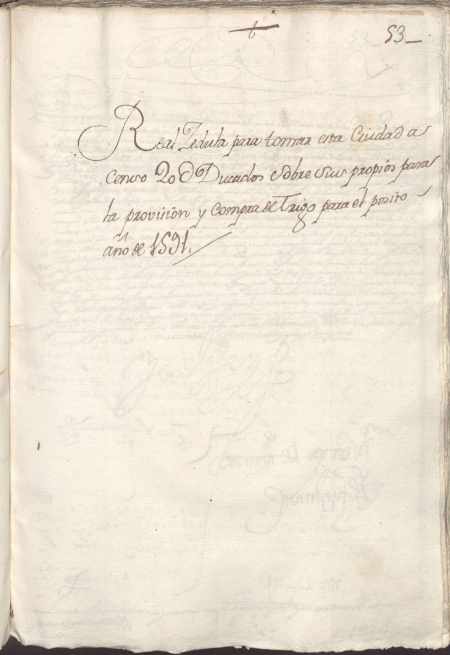 53
Real Zedula para tomar esta Ciudad a
Censo 20 D Ducados sobre sus propios para
la provision y Compra de Trigo para el posito
año de 1591.